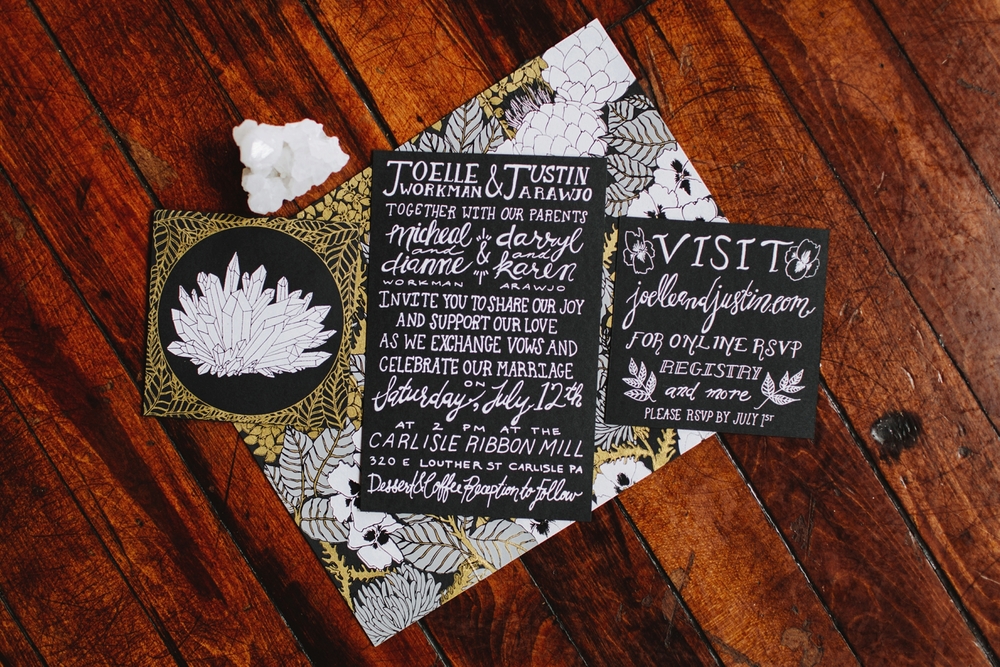 JOELLE & JUSTIN
WORKMAN ARAWJO
TOGETHER WITH OUR PARENTS
micheal & darryl
and and
dianne karen
WORKMAN ARAWJO
INVITE YOU TO SHARE OUR JOY
AND SUPPORT OUR LOVE
AS WE EXCHANGE VOWS AND
CELEBRATE OUR MARRIAGE
ON
Saturday, July 12th
AT 2 PM AT THE
CARLISLE RIBBON MILL
320 E LOUTHER ST CARLISLE PA
Dessert & Coffee Reception to Follow
VISIT
joelleandjustin.com
FOR ONLINE RSVP
REGISTRY
and more
PLEASE RSVP BY JULY 1ST